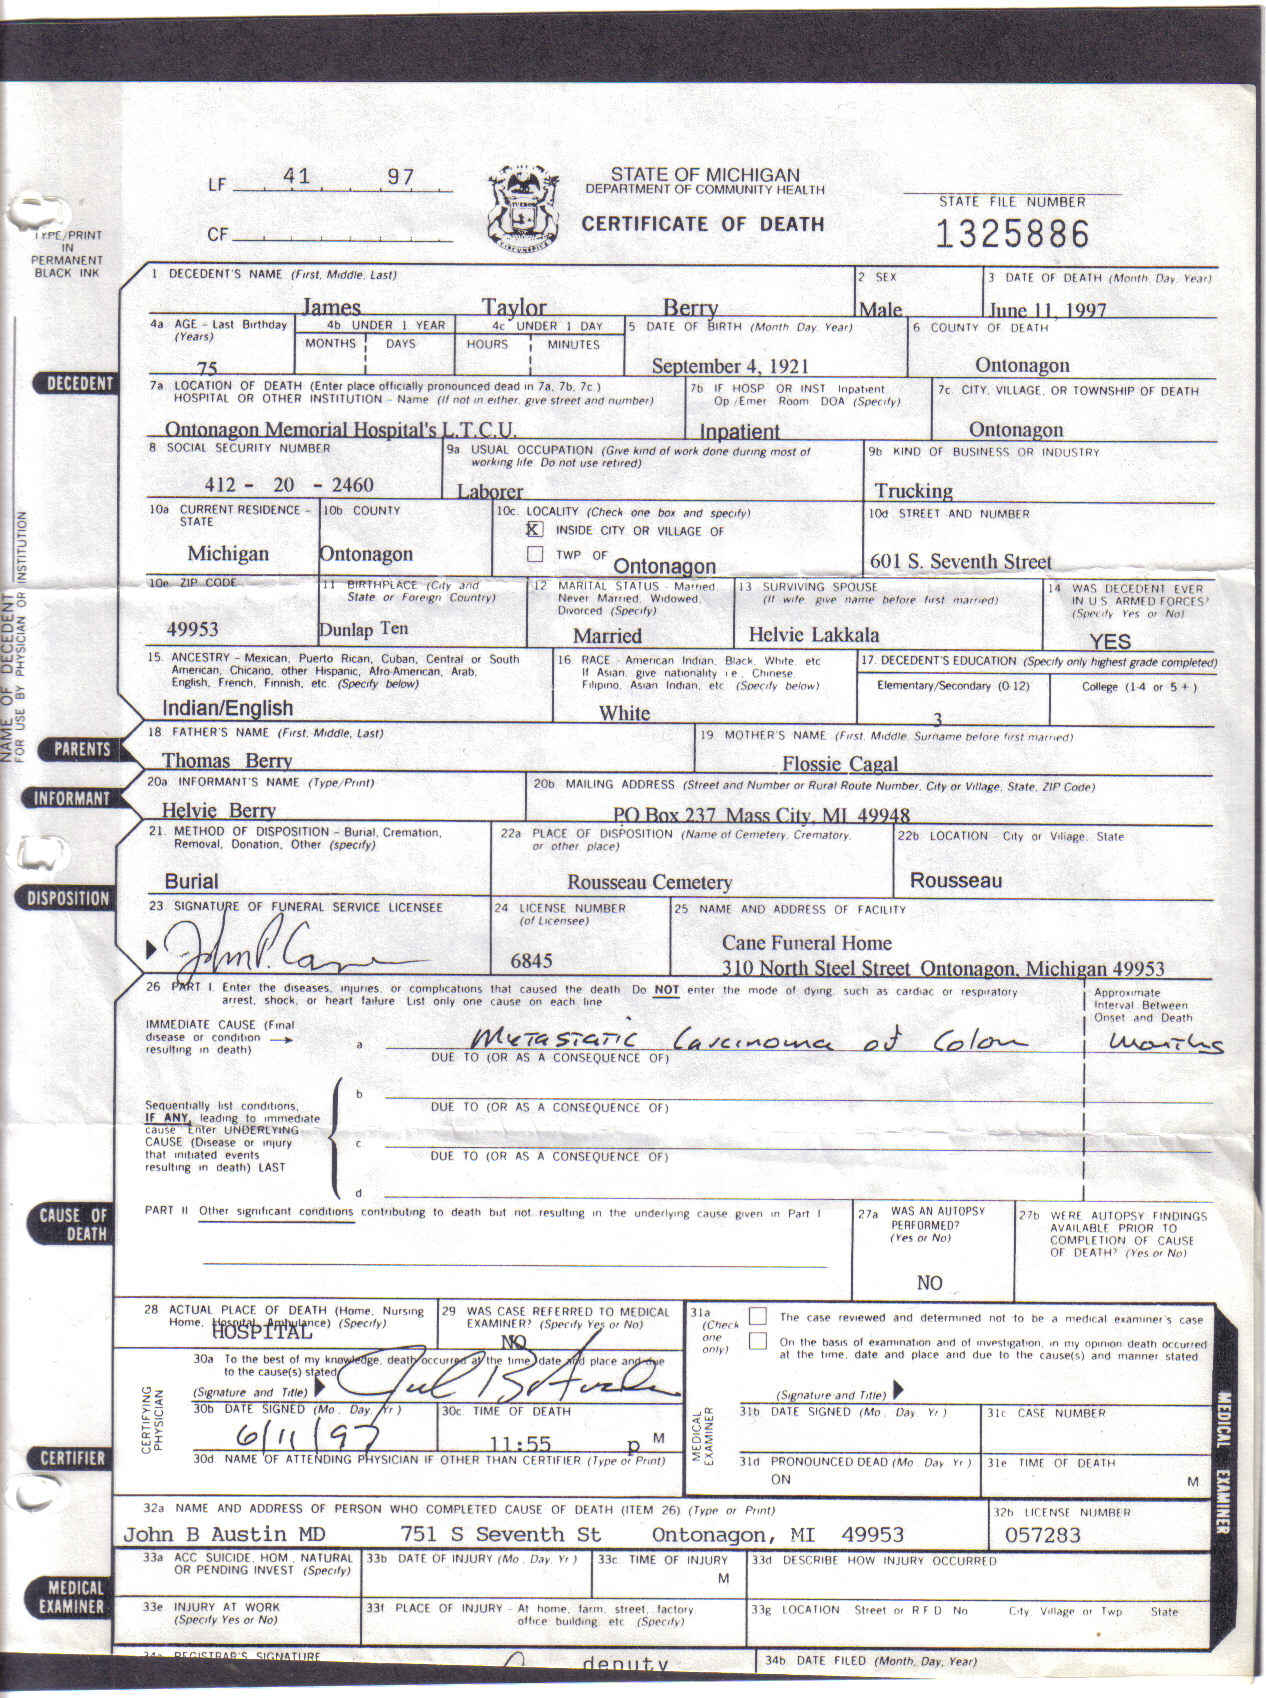 LF 41 97
STATE OF MICHIGAN
DEPARTMENT OF COMMUNITY HEALTH
CERTIFICATE OF DEATH
CF
STATE FILE NUMBER
1325886
TYPE/PRINT
IN
PERMANENT
BLACK INK
NAME OF DECEDENT
FOR USE BY PHYSICIAN OR INSTITUTION
DECEDENT
1 DECEDENT'S NAME (First, Middle, Last)
James Taylor Berry
2 SEX
Male
3 DATE OF DEATH (Month, Day, Year)
June 11, 1997
4a AGE - Last Birthday
(Years)
75
4b UNDER 1 YEAR
MONTHS DAYS
4c UNDER 1 DAY
HOURS MINUTES
5 DATE OF BIRTH (Month Day, Year)
September 4, 1921
6 COUNTY OF DEATH
Ontonagon
7a. LOCATION OF DEATH (Enter place officially pronounced dead in 7a, 7b, 7c.)
HOSPITAL OR OTHER INSTITUTION - Name (If not in either, give street and number)
Ontonagon Memorial Hospital's L.T.C.U.
7b IF HOSP OR INST Inpatient
Op/Emer Room DOA (Specify)
Inpatient
7c. CITY, VILLAGE, OR TOWNSHIP OF DEATH
Ontonagon
8 SOCIAL SECURITY NUMBER
412 - 20 - 2460
9a USUAL OCCUPATION (Give kind of work done during most of
working life Do not use retired)
Laborer
9b KIND OF BUSINESS OR INDUSTRY
Trucking
10a CURRENT RESIDENCE -
STATE
Michigan
10b COUNTY
Ontonagon
10c. LOCALITY (Check one box and specify)
X INSIDE CITY OR VILLAGE OF
TWP OF Ontonagon
10d STREET AND NUMBER
601 S. Seventh Street
10e ZIP CODE
49953
11 BIRTHPLACE (City and
State or Foreign Country)
Dunlap Ten
12 MARITAL STATUS - Married,
Never Married, Widowed,
Divorced (Specify)
Married
13 SURVIVING SPOUSE
(If wife give name before first married)
Helvie Lakkala
14 WAS DECEDENT EVER
IN U S ARMED FORCES?
(Specify Yes or No)
YES
15. ANCESTRY - Mexican, Puerto Rican, Cuban, Central or South
American, Chicano, other Hispanic, Afro-American, Arab,
English, French, Finnish, etc. (Specify below)
Indian/English
16. RACE - American Indian, Black, White, etc
If Asian, give nationality i.e., Chinese,
Filipino, Asian Indian, etc (Specify below)
White
17. DECEDENT'S EDUCATION (Specify only highest grade completed)
Elementary/Secondary (0-12) College (1-4 or 5 + )
3
PARENTS
18. FATHER'S NAME (First, Middle, Last)
Thomas Berry
19 MOTHER'S NAME (First, Middle, Surname before first married)
Flossie Cagal
INFORMANT
20a INFORMANT'S NAME (Type/Print)
Helvie Berry
20b MAILING ADDRESS (Street and Number or Rural Route Number, City or Village, State, ZIP Code)
PO Box 237 Mass City, MI 49948
DISPOSITION
21. METHOD OF DISPOSITION - Burial, Cremation,
Removal, Donation, Other (specify)
Burial
22a PLACE OF DISPOSITION (Name of Cemetery, Crematory,
or other place)
Rousseau Cemetery
22b LOCATION - City or Village, State
Rousseau
23. SIGNATURE OF FUNERAL SERVICE LICENSEE
John P. Cane
24 LICENSE NUMBER
(of Licensee)
6845
25 NAME AND ADDRESS OF FACILITY
Cane Funeral Home
310 North Steel Street Ontonagon, Michigan 49953
CAUSE OF
DEATH
26 PART I. Enter the diseases, injuries, or complications that caused the death Do NOT enter the mode of dying, such as cardiac or respiratory
arrest, shock, or heart failure List only one cause on each line
Approximate
Interval Between
Onset and Death
IMMEDIATE CAUSE (Final
disease or condition
resulting in death)
a Metastatic Carcinoma of Colon months
DUE TO (OR AS A CONSEQUENCE OF)
b
DUE TO (OR AS A CONSEQUENCE OF)
Sequentially list conditions,
IF ANY, leading to immediate
cause Enter UNDERLYING
CAUSE (Disease or injury
that initiated events
resulting in death) LAST
c
DUE TO (OR AS A CONSEQUENCE OF)
d
PART II Other significant conditions contributing to death but not resulting in the underlying cause given in Part I
27a WAS AN AUTOPSY
PERFORMED?
(Yes or No)
NO
27b WERE AUTOPSY FINDINGS
AVAILABLE PRIOR TO
COMPLETION OF CAUSE
OF DEATH? (Yes or No)
CERTIFIER
28 ACTUAL PLACE OF DEATH (Home, Nursing
Home, Hospital, Ambulance) (Specify)
HOSPITAL
29 WAS CASE REFERRED TO MEDICAL
EXAMINER? (Specify Yes or No)
NO
CERTIFYING
PHYSICIAN
30a To the best of my knowledge, death occurred at the time, date and place and due
to the cause(s) stated
(Signature and Title)
30b DATE SIGNED (Mo., Day, Yr)
6/11/97
30c. TIME OF DEATH
11:55 p M
30d NAME OF ATTENDING PHYSICIAN IF OTHER THAN CERTIFIER (Type or Print)
MEDICAL
EXAMINER
31a
(Check
one
only)
The case reviewed and determined not to be a medical examiner's case
On the basis of examination and of investigation, in my opinion death occurred
at the time, date and place and due to the cause(s) and manner stated
(Signature and Title)
31b DATE SIGNED (Mo, Day, Yr)
31c CASE NUMBER
31d PRONOUNCED DEAD (Mo Day Yr)
ON
31e TIME OF DEATH
M
MEDICAL EXAMINER
32a NAME AND ADDRESS OF PERSON WHO COMPLETED CAUSE OF DEATH (ITEM 26) (Type or Print)
John B Austin MD 751 S Seventh St Ontonagon, MI 49953
32b LICENSE NUMBER
057283
MEDICAL
EXAMINER
33a ACC SUICIDE, HOM, NATURAL
OR PENDING INVEST (Specify)
33b DATE OF INJURY (Mo, Day, Yr)
33c. TIME OF INJURY
M
33d DESCRIBE HOW INJURY OCCURRED
33e INJURY AT WORK
(Specify Yes or No)
33f PLACE OF INJURY - At home, farm, street, factory,
office building, etc (Specify)
33g LOCATION Street or R F D No City, Village or Twp State
34a REGISTRAR'S SIGNATURE
deputy
34b DATE FILED (Month, Day, Year)